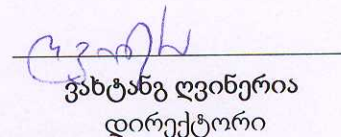 ვახტანგ ღვინერია
დირექტორი